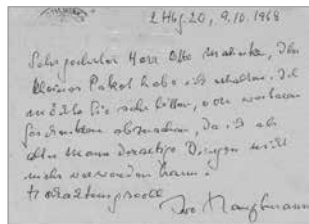 2 Hbg. 20, 9.10.1968
Sehr geehrter Herr Otto Mahnke, Ihr
kleines Paket habe ich erhalten. Ich
möchte Sie sehr bitten, von weiteren
Geschenken abzusehen, da ich als
alter Mann derartige Dinge nicht
mehr verwenden kann.
Hochachtungsvoll